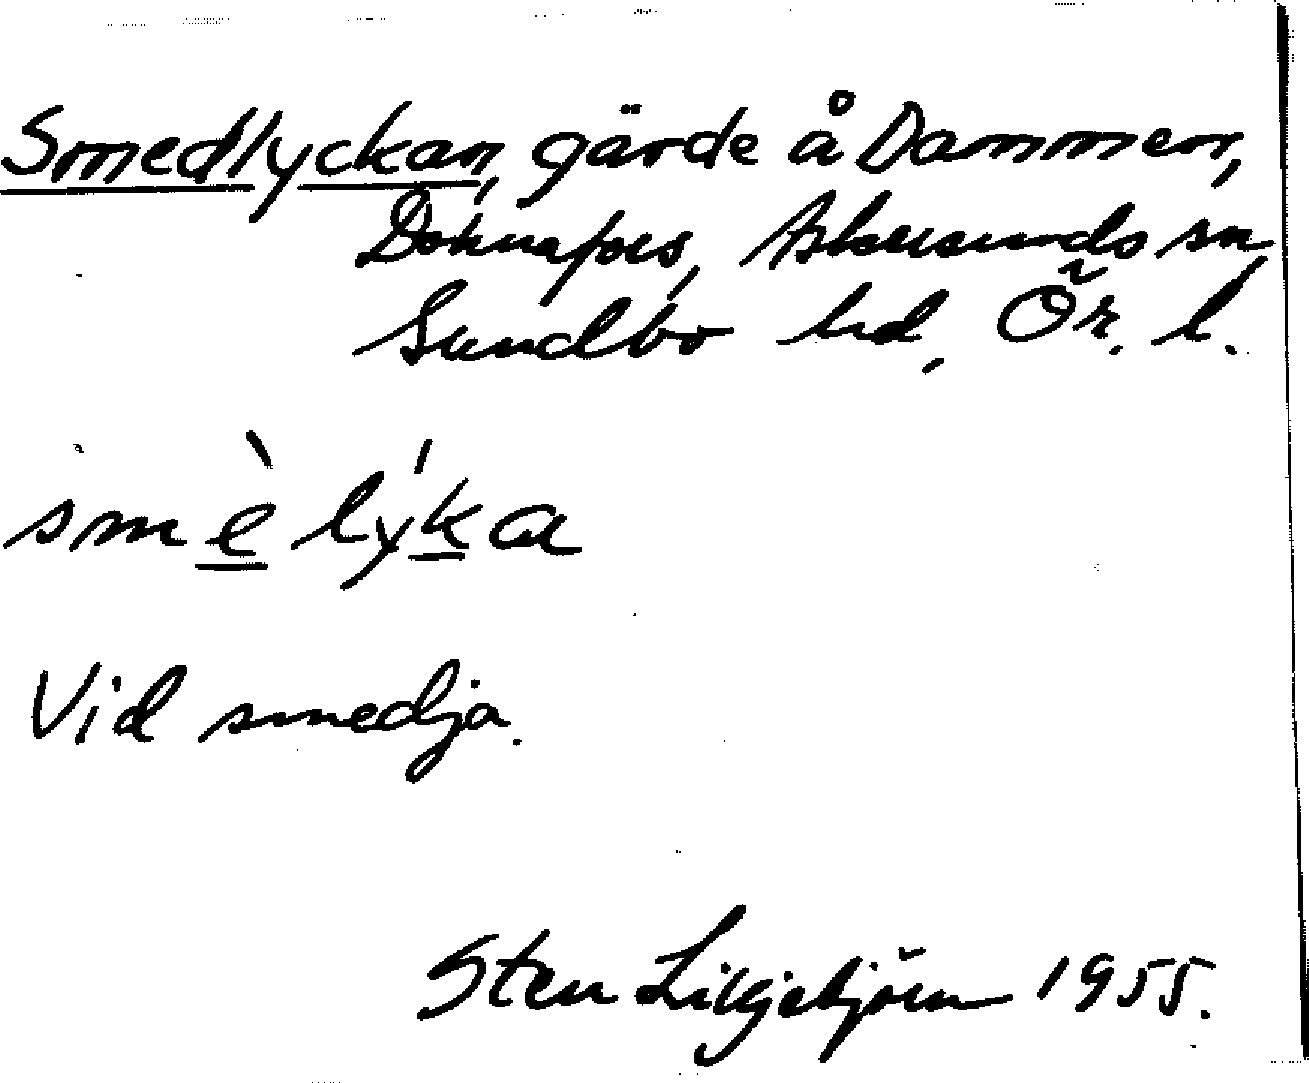 Smedlyckan, gärde å Dammen,
Dohnafors, Askersunds sn
Sundbo hd, Ör. l.
smè lýka
Vid smedja.
Sten Liljebjörn 1955.